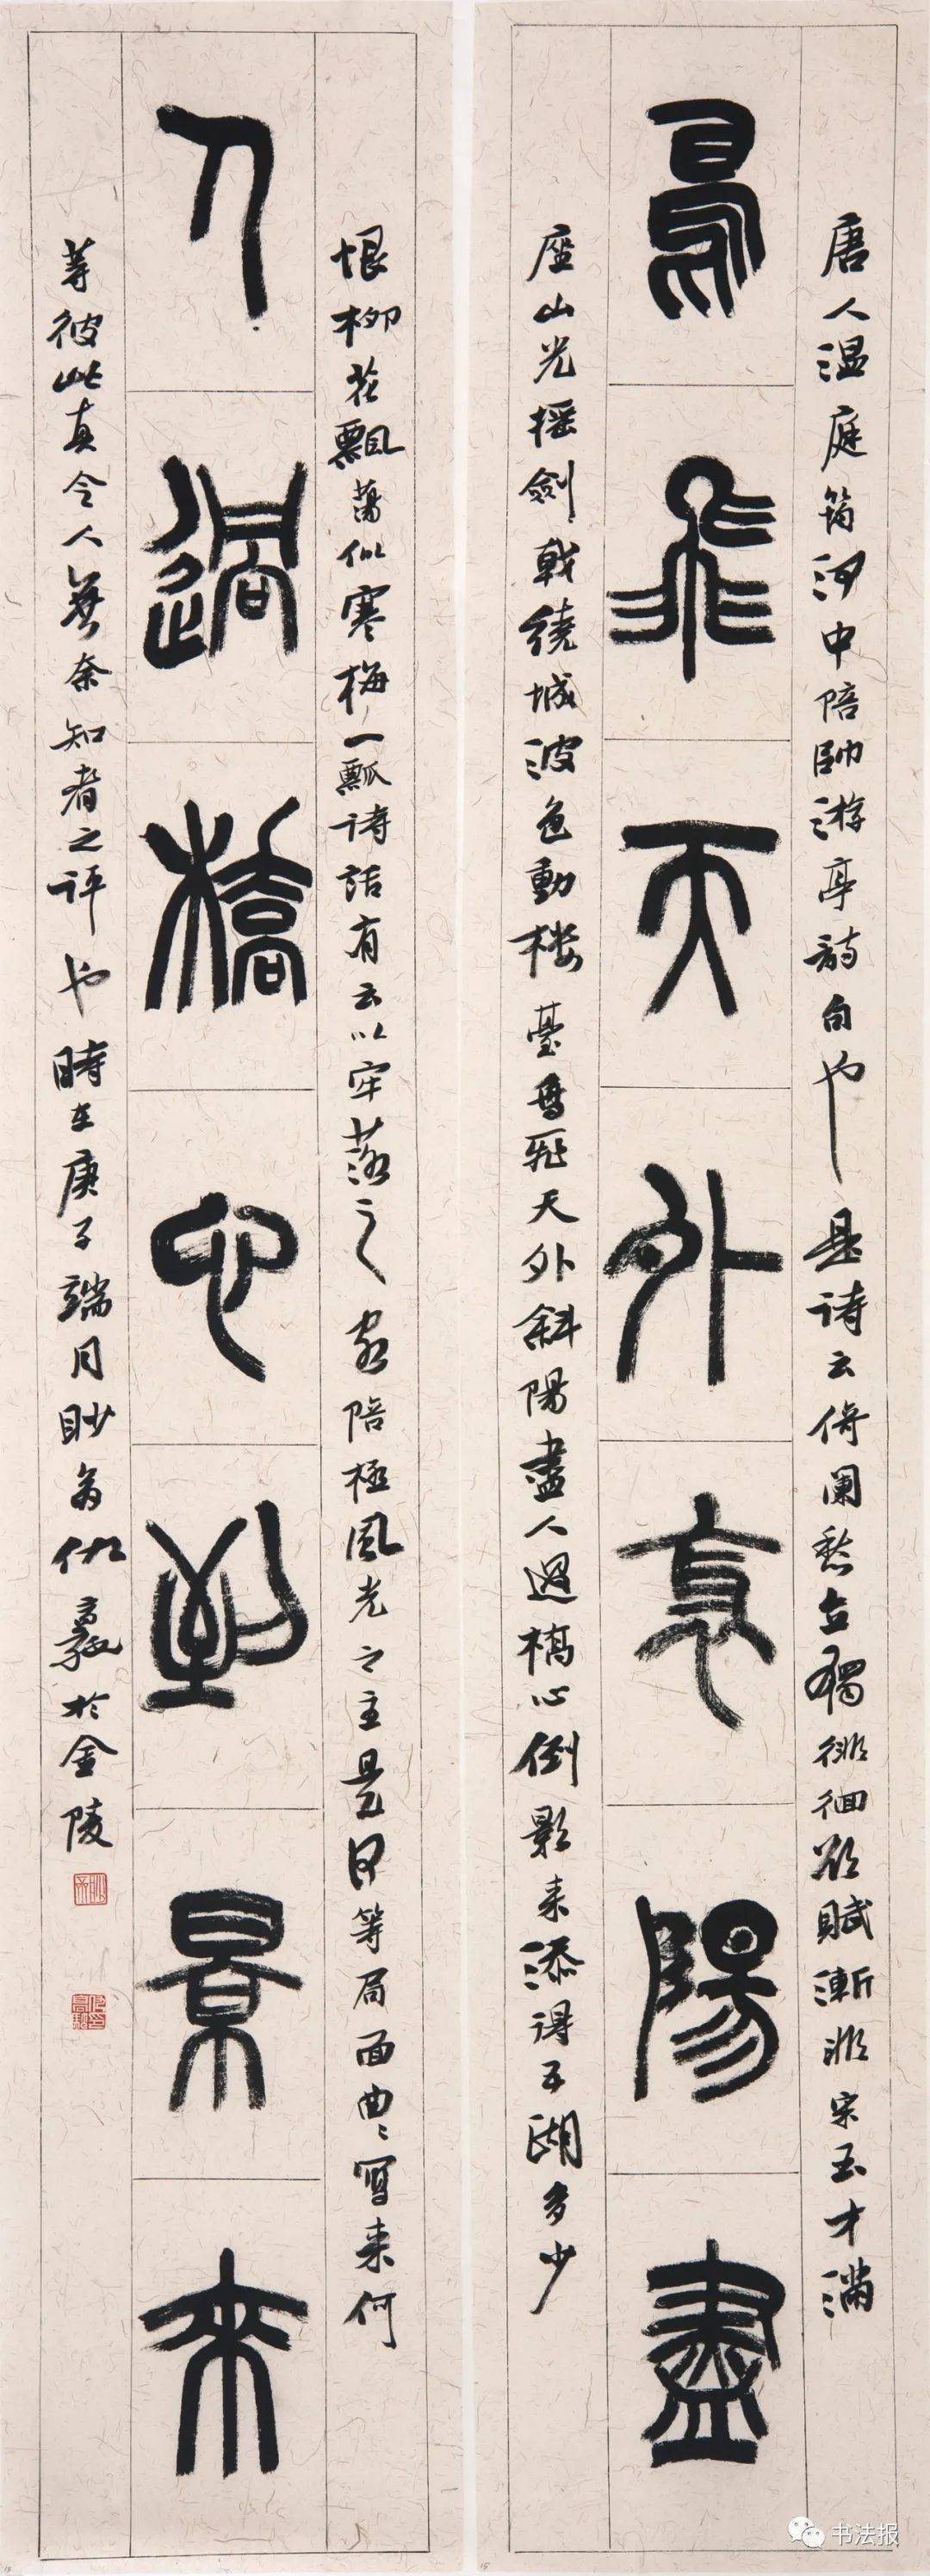 唐人温庭筠河中陪帥游亭詩句也是诗云倚阑愁立獨徘徊欲賦漸非宋玉才满
鳥飛天外衺陽盡
座山光摇劍戟繞城波色動楼臺鳥飛天外斜陽盡人過橋心倒影来添得五湖多少
恨柳花飄蕩似寒梅一瓢诗話有云以牢落之客陪極風光之主是何等局面曲曲寫来何
人過橋心到景来
等彼此真令人無奈知者之评也時在庚子端月眇翁仇於金陵
书法报